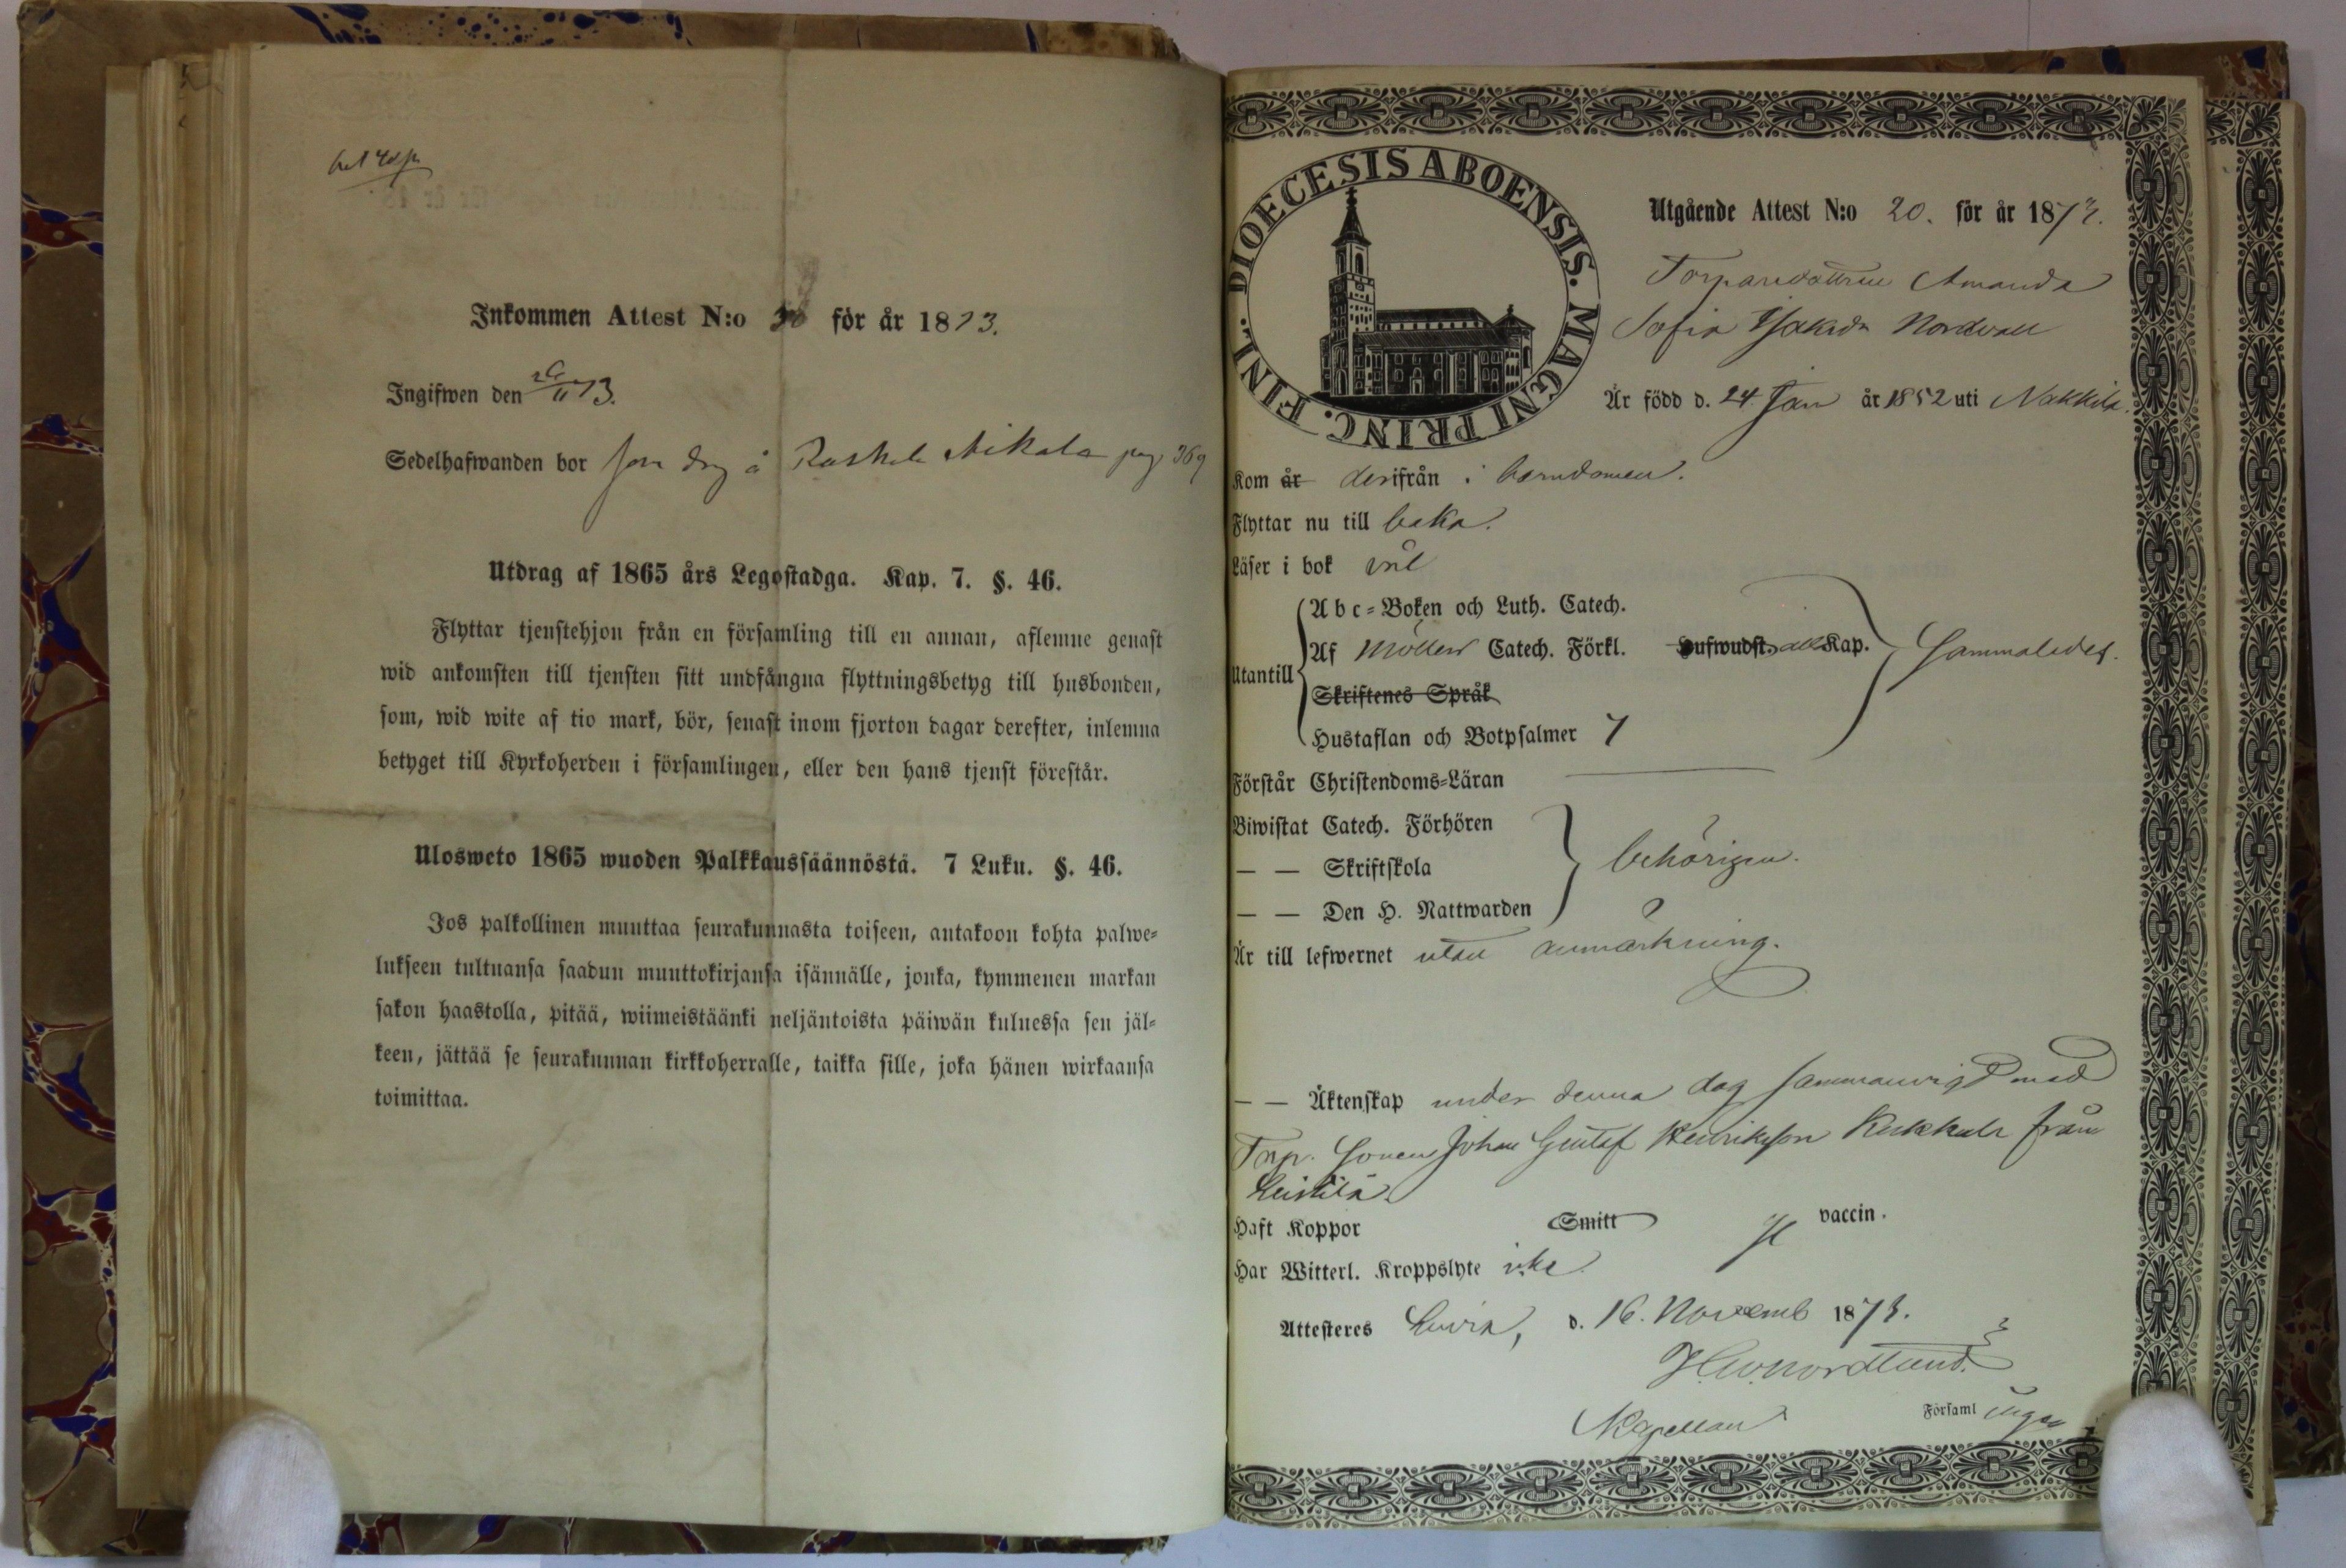 Inkommen Attest N:o för år 1873.
Ingifwen den 26/11 73.
Sedelhafwanden bor som drg å Nikala pag 369
Utdrag af 1865 års Legostadga. Kap. 7. §. 46.
Flyttar tjenstehjon från en församling till en annan, aflemne genast
wid ankomsten till tjensten sitt undfångna flyttningsbetyg till husbonden,
som, wid wite af tio mark, bör, senast inom fjorton dagar derefter, inlemna
betyget till Kyrkoherden i församlingen, eller den hans tjenst förestår.
Ulosweto 1865 wuoden Palkkaussäännöstä. 7 Luku. §. 46.
Jos palkollinen muuttaa seurakunnasta toiseen, antakoon kohta palwe-
lukseen tultuansa saadun muuttokirjansa isännälle, jonka, kymmenen markan
sakon haastolla, pitää, wiimeistäänki neljäntoista päiwän kuluessa sen jäl-
keen, jättää se seurakunnan kirkkoherralle, taikka sille, joka hänen wirkaansa
toimittaa.
DIOECESIS ABOENSIS. MAGNI PRINC. FINL.
Utgående Attest N:o 20. för år 1873.
Torparedottren Amanda
Sofia Isaksdr Nordvall
Är född d. 24 Jan år 1852 uti Nakkila.
Kom år derifrån i barndomen.
Flyttar nu till baka.
Läser i bok väl
Abc-Boken och Luth. Catech.
Af Möllers Catech. Förkl. Hufwudst. alla Kap.
Utantill
Sammaledes.
Skriftenes Språk
Hustaflan och Botpsalmer 7
Förstår Christendoms-Läran
Biwistat Catech. Förhören
— — Skriftskola
behörigen.
— — Den H. Nattwarden
Är till lefwernet utan anmärkning.
— — Äktenskap under denna dag sammanvigd med
Torp. Sonen Johan Gustaf Henriksson från
Leistilä.
Haft Koppor Smitt vaccin.
Har Witterl. Kroppslyte icke
Attesteres Luvia, d. 16. Novemb 1873.
Nordlund.
Kapellan Församl ingen